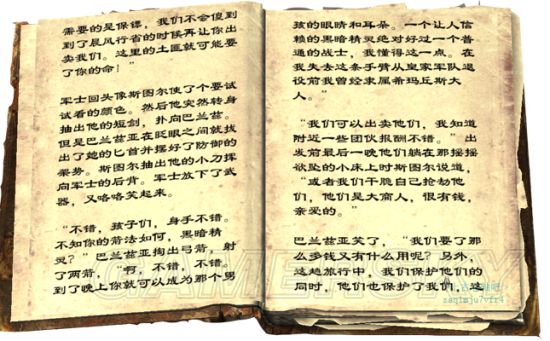 需要的是保镖，我们不会傻到
到了晨风行省的时候再让你出
卖我们。这里的土匪就可能要
了你的命！”
军士回头像斯图尔使了个要试
试看的颜色。然后他突然转身
抽出他的短剑，扑向巴兰兹。
但是巴兰兹亚在眨眼之间就找
出了她的匕首并摆好了防御的
架势。斯图尔抽出他的小刀挥
向军士的后背。军士放下了武
器，又咯咯笑起来。
“不错，孩子们，身手不错。
不知你的箭法如何，黑暗精
灵？”巴兰兹亚掏出弓箭，射
了两箭，“啊，不错，不错，
到了晚上你就可以成为那个男
孩的眼睛和耳朵。一个让人信
赖的黑暗精灵绝对好过一个普
通的战士，我懂得这一点。在
我失去这条手臂从皇家军队退
役前我曾经隶属希玛丘斯大
人。”
“我们可以出卖他们，我知道
附近一些团伙报酬不错。”出
发前最后一晚他们躺在那摇摇
欲坠的小床上时斯图尔说道，
“或者我们干脆自己抢劫他
们，他们是大商人，很有钱，
亲爱的。”
巴兰兹亚笑了，“我们要了那
么多钱又有什么用呢？另外，
这趟旅行中，我们保护他们的
同时，他们也保护了我们，这
GAMERSKY